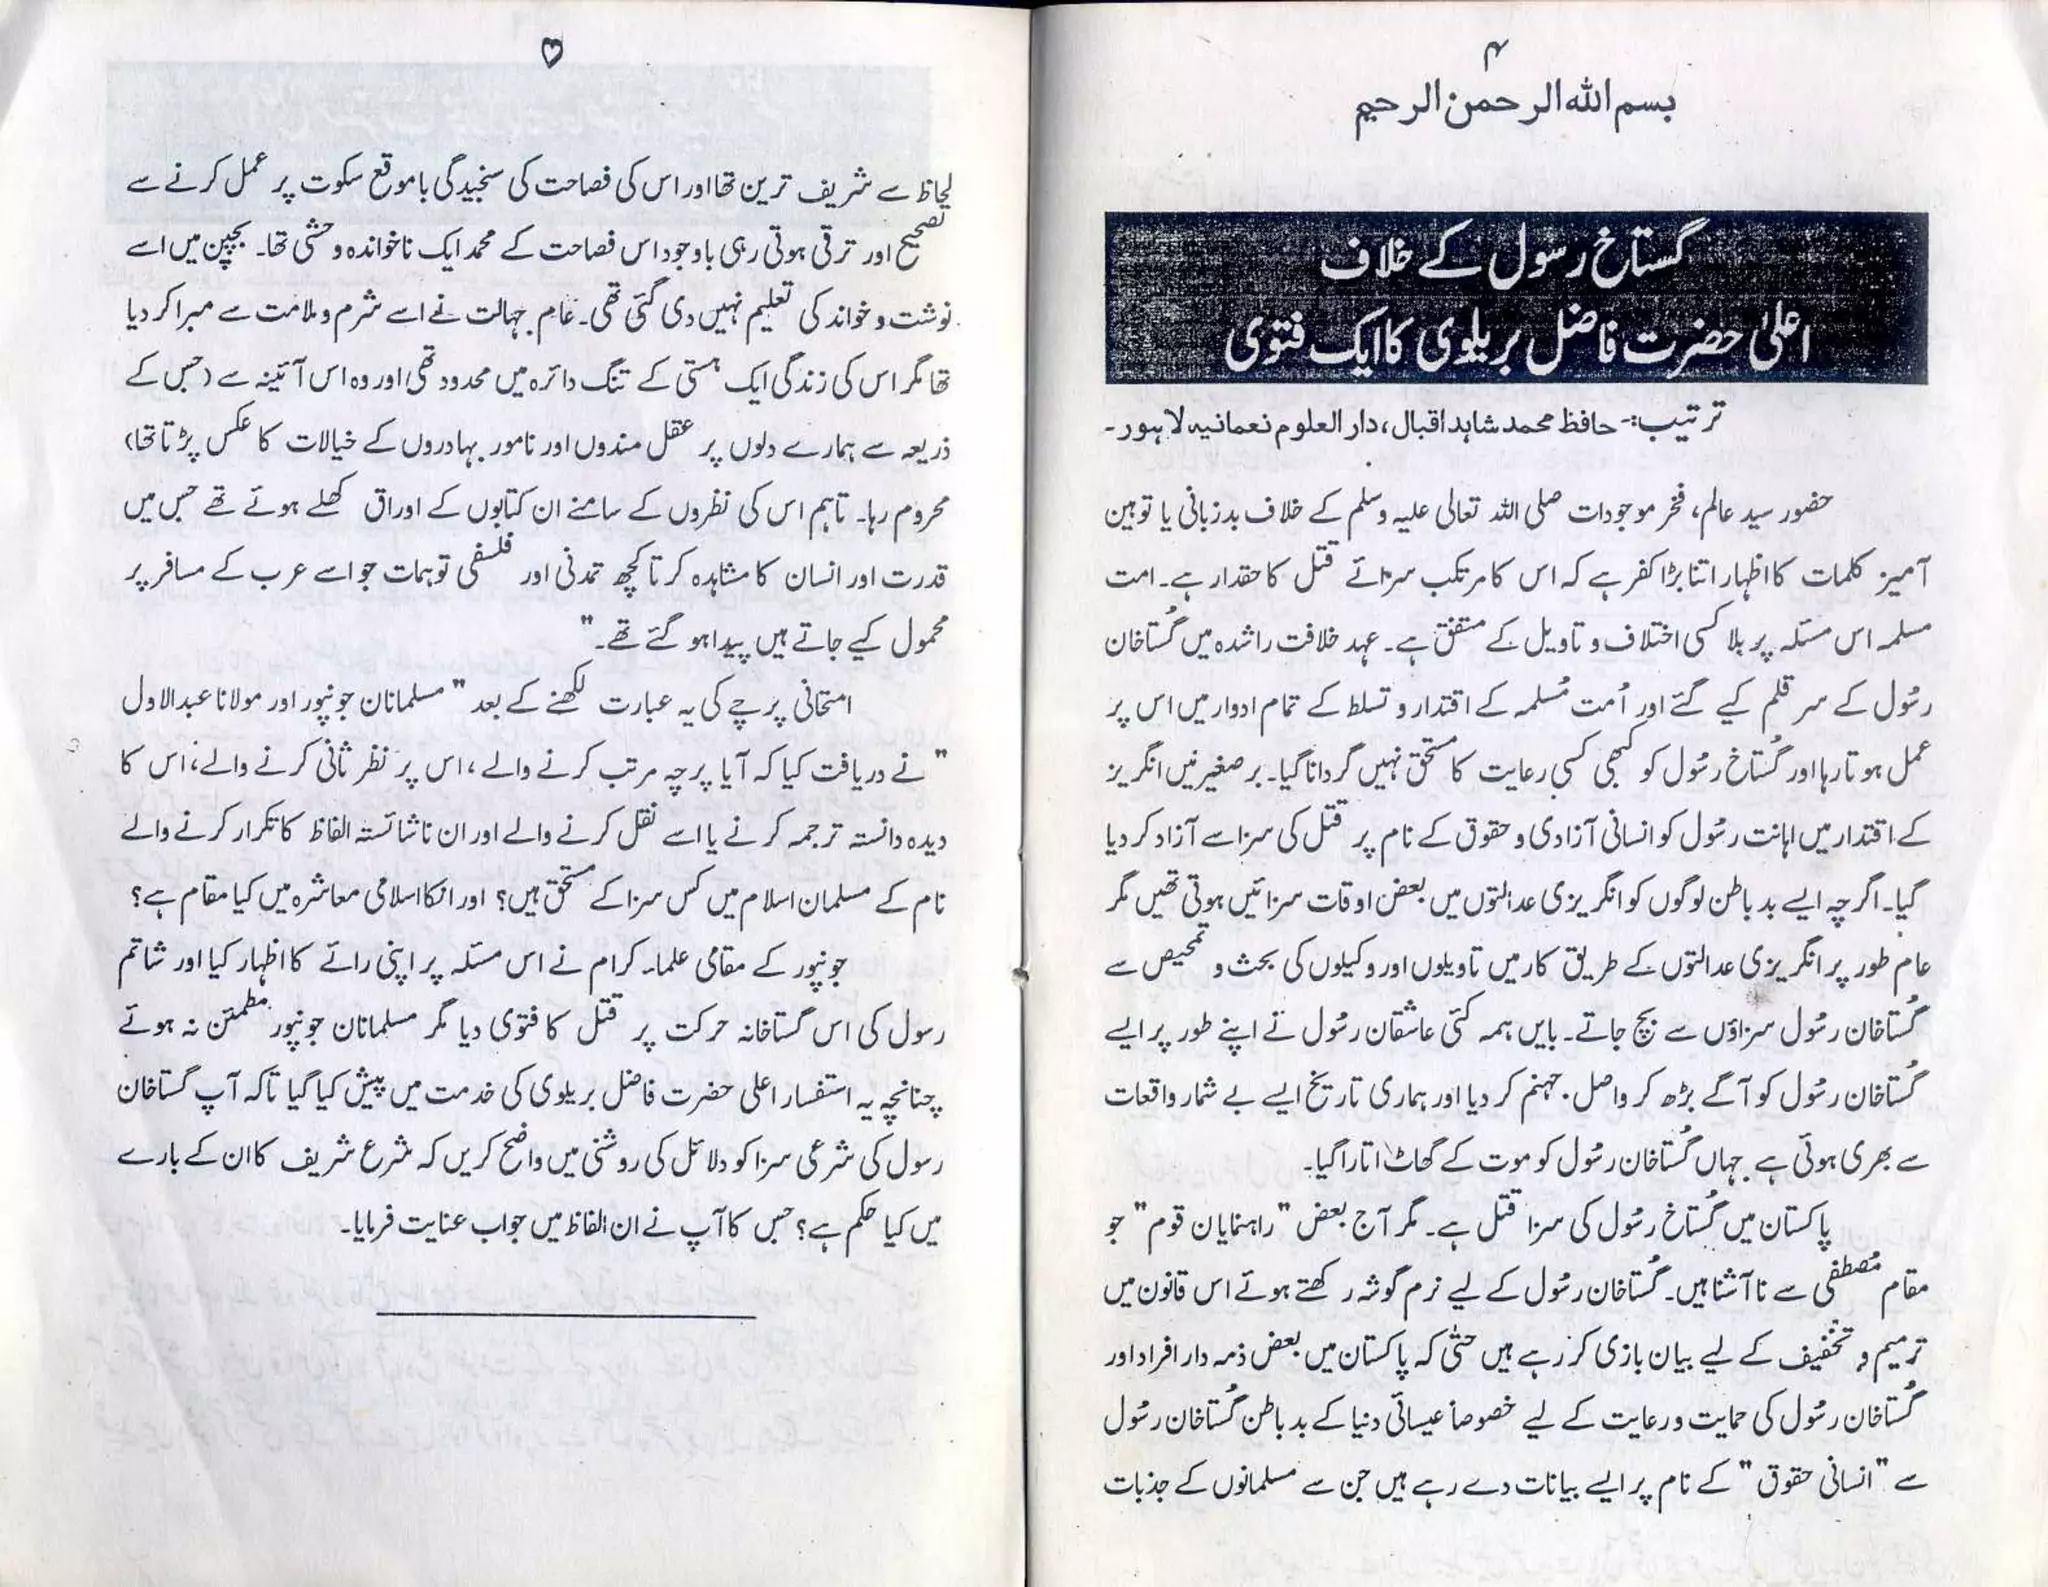 ۴
بسم اللہ الرحمن الرحیم
گستاخ رسول کے خلاف
اعلیٰ حضرت فاضل بریلوی کا ایک فتویٰ
ترتیب:- حافظ محمد شاہد اقبال، دار العلوم نعمانیہ لاہور۔
حضور سید عالم، فخر موجودات صلی اللہ تعالی علیہ وسلم کے خلاف بدزبانی یا توہین
آمیز کلمات کا اظہار اتنا بڑا کفر ہے کہ اس کا مرتکب سزائے قتل کا حقدار ہے۔ امت
مسلمہ اس مسئلہ پر بلا کسی اختلاف و تاویل کے متفق ہے۔ عہد خلافت راشدہ میں گُستاخان
رسُول کے سر قلم کیے گئے اور اُمت مُسلمہ کے اقتدار و تسلط کے تمام ادوار میں اس پر
عمل ہوتا رہا اور گُستاخ رسُول کو کبھی کسی رعایت کا مستحق نہیں گردانا گیا۔ برصغیر میں انگریز
کے اقتدار میں اہانت رسُول کو انسانی آزادی و حقوق کے نام پر قتل کی سزا سے آزاد کر دیا
گیا۔ اگرچہ ایسے بد باطن لوگوں کو انگریزی عدالتوں میں بعض اوقات سزائیں ہوتی تھیں مگر
عام طور پر انگریزی عدالتوں کے طریق کار میں تاویلوں اور وکیلوں کی بحث و تمحیص سے
گُستاخان رسُول سزاؤں سے بچ جاتے۔ بایں ہمہ کئی عاشقان رسُول نے اپنے طور پر ایسے
گُستاخان رسُول کو آگے بڑھ کر واصل جہنم کر دیا اور ہماری تاریخ ایسے بے شمار واقعات
سے بھری ہوئی ہے جہاں گُستاخان رسُول کو موت کے گھاٹ اتارا گیا۔
پاکستان میں گُستاخ رسُول کی سزا قتل ہے۔ مگر آج بعض "راہنمایان قوم" جو
مقام مُصطفٰی سے نا آشنا ہیں۔ گُستاخان رسُول کے لیے نرم گوشہ رکھتے ہوئے اس قانون میں
ترمیم و تخفیف کے لیے بیان بازی کر رہے ہیں حتٰی کہ پاکستان میں بعض ذمہ دار افراد اور
گُستاخان رسُول کی حمایت و رعایت کے لیے خصوصاً عیسائی دنیا کے بد باطن گُستاخان رسُول
سے "انسانی حقوق" کے نام پر ایسے بیانات دے رہے ہیں جن سے مسلمانوں کے جذبات
لحاظ سے شریف ترین تھا اور اس کی فصاحت کی سنجیدگی باموقع سکوت پر عمل کرنے سے
تصحیح اور ترقی ہوتی رہی باوجود اس فصاحت کے محمد ایک ناخواندہ وحشی تھا۔ بچپن میں اسے
نوشت و خواند کی تعلیم نہیں دی گئی تھی۔ عام جہالت نے اسے شرم و ملامت سے مبرا کر دیا
تھا مگر اس کی زندگی ایک ہستی کے تنگ دائرہ میں محدود تھی اور وہ اس آئینہ سے (جس کے
ذریعہ سے ہمارے دلوں پر عقل مندوں اور نامور بہادروں کے خیالات کا عکس پڑتا تھا)
محروم رہا۔ تاہم اس کی نظروں کے سامنے ان کتابوں کے اوراق کھلے ہوئے تھے جس میں
قدرت اور انسان کا مشاہدہ کرتا کچھ تمدنی اور فلسفی توہمات جو اسے عرب کے مسافر پر
محمول کیے جاتے ہیں پیدا ہو گئے تھے۔"
امتحانی پرچے کی یہ عبارت لکھنے کے بعد "مسلمانان جونپور اور مولانا عبدالاول
" نے دریافت کیا کہ آیا پرچہ مرتب کرنے والے، اس پر نظر ثانی کرنے والے، اس کا
دیدہ دانستہ ترجمہ کرنے یا اسے نقل کرنے والے اور ان ناشائستہ الفاظ کا تکرار کرنے والے
نام کے مسلمان اسلام میں کس سزا کے مستحق ہیں؟ اور انکا اسلامی معاشرہ میں کیا مقام ہے؟
جونپور کے مقامی علماء کرام نے اس مسئلہ پر اپنی رائے کا اظہار کیا اور شاتم
رسول کی اس گستاخانہ حرکت پر قتل کا فتوی دیا مگر مسلمانان جونپور مطمئن نہ ہوئے
چنانچہ یہ استفسار اعلی حضرت فاضل بریلوی کی خدمت میں پیش کیا گیا تاکہ آپ گستاخان
رسول کی شرعی سزا کو دلائل کی روشنی میں واضح کریں کہ شرع شریف کا ان کے بارے
میں کیا حکم ہے؟ جس کا آپ نے ان الفاظ میں جواب عنایت فرمایا۔